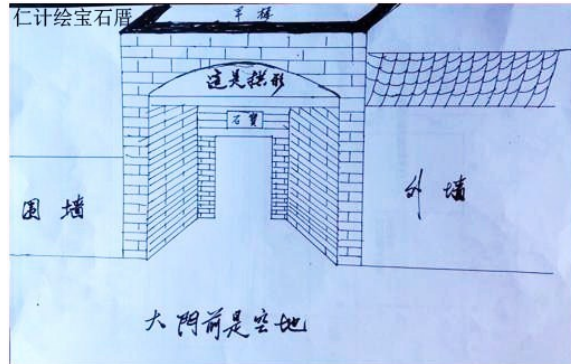 仁计绘宝石厝
平棟
这是拱形
石寶
围墙
外墙
大門前是空地